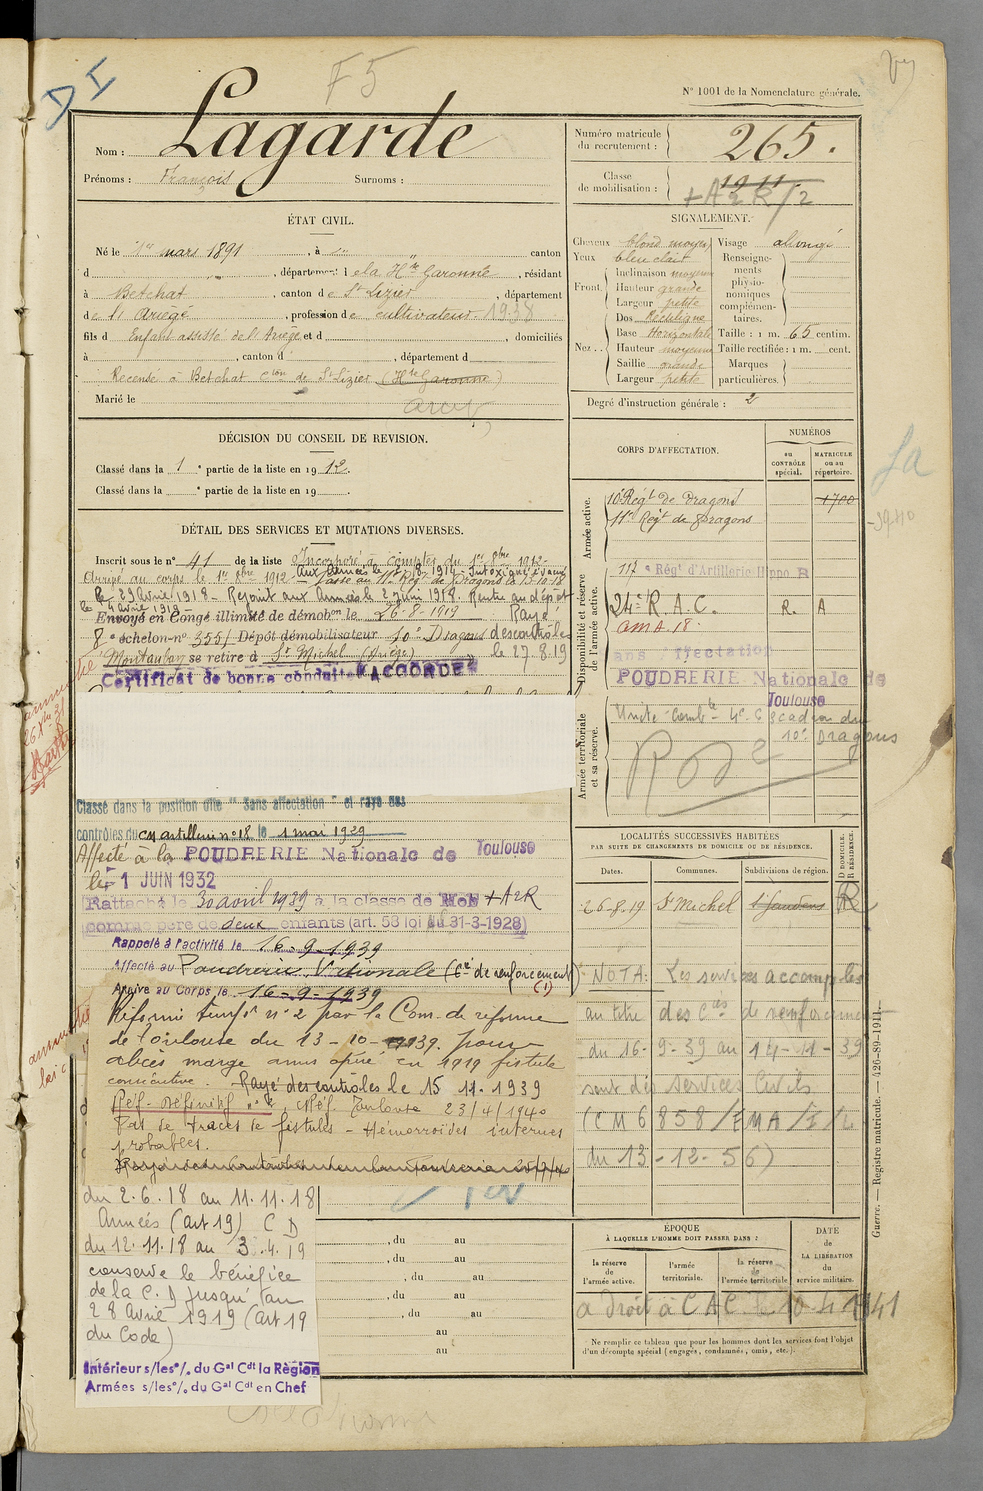 D I
F 5
N° 1001 de la Nomenclature générale.
Nom : Lagarde
Prénoms : François Surnoms :
Numéro matricule du recrutement : 265.
Classe de mobilisation : 1911 + A 2 R/2
ÉTAT CIVIL.
Né le 1er mars 1891, à canton
d , département de la Hte Garonne, résidant
à Betchat, canton de St Lizier, département
de l'Ariège, profession de cultivateur. 1938
fils d Enfant assisté de l'Ariège et d , domiciliés
à , canton d , département d
Recensé à Betchat Cton de St Lizier (Hte Garonne)
Marié le
SIGNALEMENT.
Cheveux blond moyen
Yeux bleu clair
Front. Inclinaison moyenne
Hauteur grande
Largeur petite
Nez.. Dos Rectiligne
Base Horizontale
Hauteur moyenne
Saillie grande
Largeur petite
Visage allongé
Renseignements physionomiques complémentaires.
Taille : 1 m. 65 centim.
Taille rectifiée : 1 m. cent.
Marques particulières.
Degré d'instruction générale : 2
DÉCISION DU CONSEIL DE REVISION.
Classé dans la 1 e partie de la liste en 1912.
Classé dans la e partie de la liste en 19
DÉTAIL DES SERVICES ET MUTATIONS DIVERSES.
Inscrit sous le n° 41 de la liste Incorporé à compter du 1er 8bre 1912
Arrivé au corps le 1er 8bre 1912
Passé au 11e Régt de Dragons le 15-10-18
le 29 Avril 1918 - Rejoint aux Armées le 2 Juin 1918. Rentré au dépôt
le 4 avril 1919
Envoyé en Congé illimité de démobon le 26-8-1919 Rayé
8e échelon-n° 355/ Dépôt démobilisateur 10e Dragons des contrôles
Montauban se retire à St Michel (Ariège) le 27.8.19
Certificat de bonne conduite "ACCORDÉ"
Classé dans la position dite "Sans affectation" et rayé des
contrôles du CM artillerie n° 18 le 1 mai 1929
Affecté à la POUDRERIE Nationale de Toulouse
le 1 JUIN 1932
Rattaché le 30 avril 1939 à la classe de Mob + A2R
comme père de deux enfants (art. 58 loi du 31-3-1928)
Rappelé à l'activité le 16-9-1939
Affecté au Poudrerie Nationale (Cie de renforcement)
(1)
Arrivé au Corps le 16-9-1939
Réformé tempre n° 2 par la Com. de réforme
de Toulouse du 13-10-1939. pour
abcès marge anus opéré en 1919 fistule
consécutive. Rayé des contrôles le 15 11-1939
Réf. Définitif n° 2, C. Réf. Toulouse 23/4/1940
Pas de traces de fistules - Hémorroïdes internes
probables.
du 2.6.18 au 11.11.18
Armées (art 19) C D
du 12.11.18 au 3.4.19
conserve le bénéfice
de la C. D jusqu'au
28 Avril 1919 (art 19
du Code)
Intérieur s/les o/. du Gal Cdt la Région
Armées s/les o/. du Gal Cdt en Chef
, du au
, du au
, du au
, du au
, du au
au
au
CORPS D'AFFECTATION.
NUMÉROS
au CONTRÔLE spécial.
MATRICULE ou au répertoire.
Armée active.
10e Régt de Dragons 1700
11e Régt de Dragons
Disponibilité et réserve de l'armée active.
117 e Régt d'Artillerie Hippo R
24e R.A.C. R. A
CMA.18.
Sans Affectation
POUDRERIE Nationale de
Toulouse
Armée territoriale et sa réserve.
Unité Combte 4e Escadron du
10e Dragons
LOCALITÉS SUCCESSIVES HABITÉES
PAR SUITE DE CHANGEMENTS DE DOMICILE OU DE RÉSIDENCE.
Dates. Communes. Subdivisions de région. D DOMICILE. R RÉSIDENCE.
26.8.19 St Michel St Gaudens R
NOTA: Les services accomplis
au titre des Cies de renforcement
du 16-9-39 au 14-11-39
sont des services Civils
(CM 6858/EMA/I/L
du 13-12-56)
ÉPOQUE
À LAQUELLE L'HOMME DOIT PASSER DANS :
la réserve de l'armée active.
l'armée territoriale.
la réserve de l'armée territoriale
DATE de LA LIBÉRATION du service militaire.
a droit à C A C le 10-4-1941
Ne remplir ce tableau que pour les hommes dont les services font l'objet
d'un décompte spécial (engagés, condamnés, omis, etc.).
Guerre. — Registre matricule. — 426-89-1911.